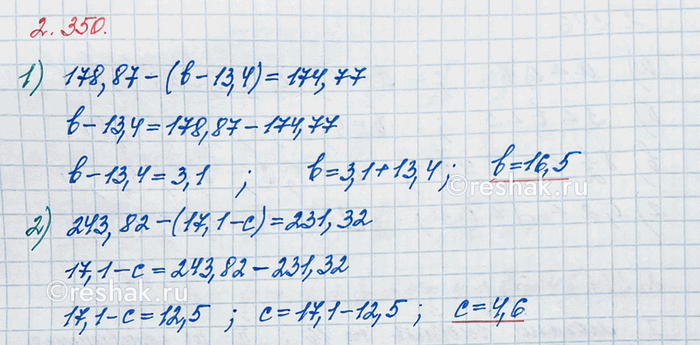 2.350.
1) 178,87-(b-13,4)=174,77
b-13,4=178,87-174,77
b-13,4=3,1 ; b=3,1+13,4; b=16,5
2) 243,82-(17,1-c)=231,32
17,1-c=243,82-231,32
17,1-c=12,5 ; c=17,1-12,5 ; c=4,6
©reshak.ru
©reshak.ru